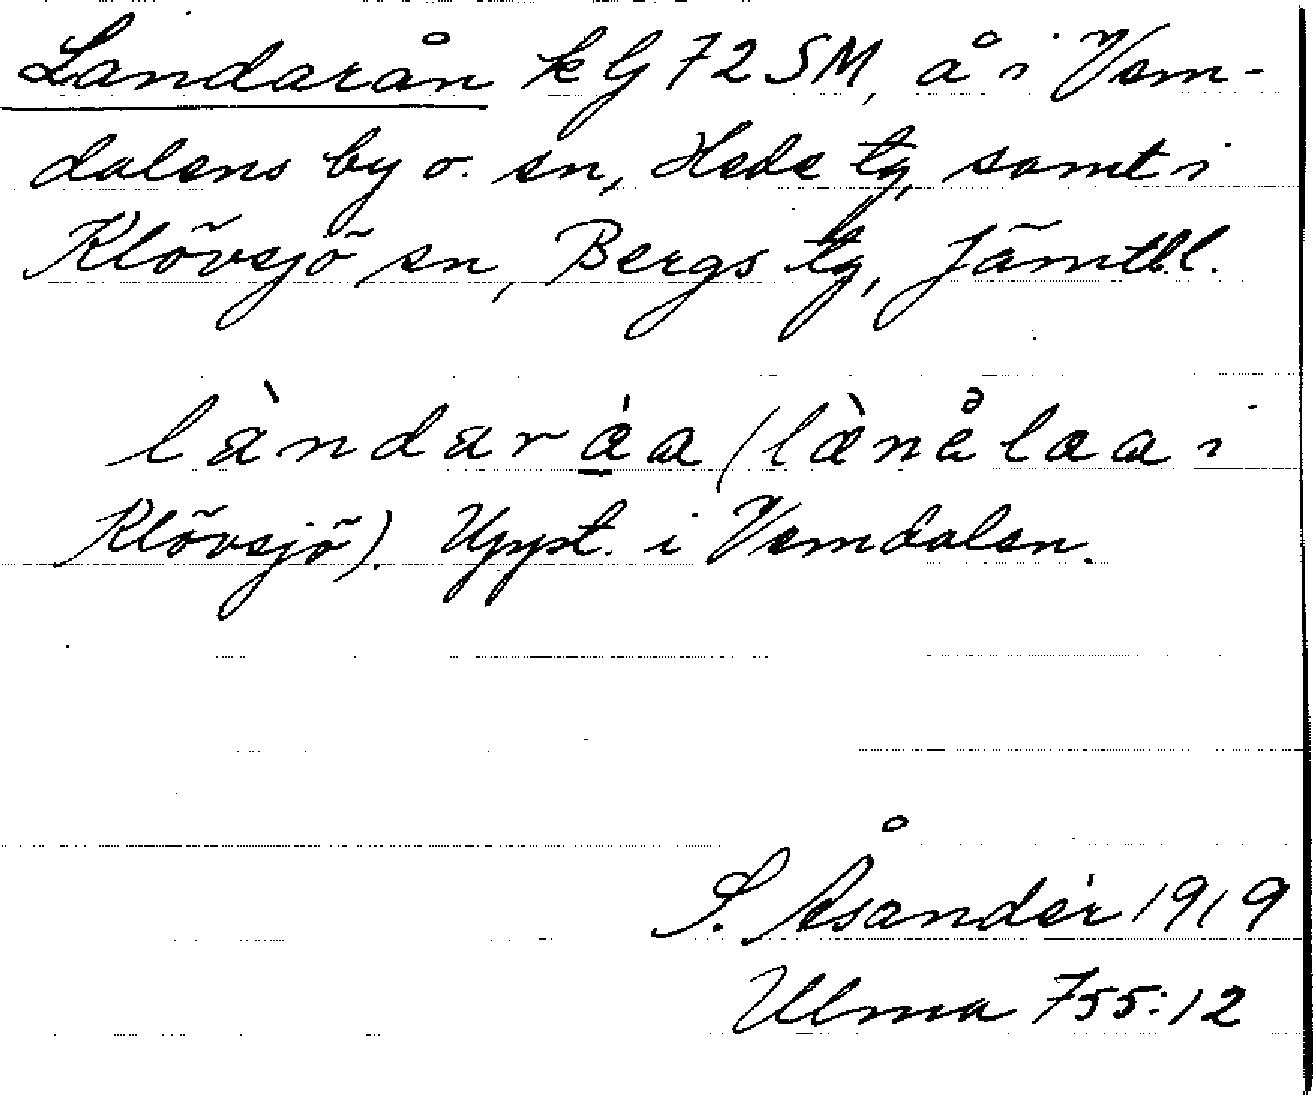 Landarån kG 72 SM, å i Vem-
dalens by o. sn, Hede tg, samt i
Klövsjö sn, Bergs tg, Jämtl. l.
làndaráa (lænålaa i
Klövsjö). Uppt. i Vemdalen.
S. Åsandér 1919
Ulma 755:12